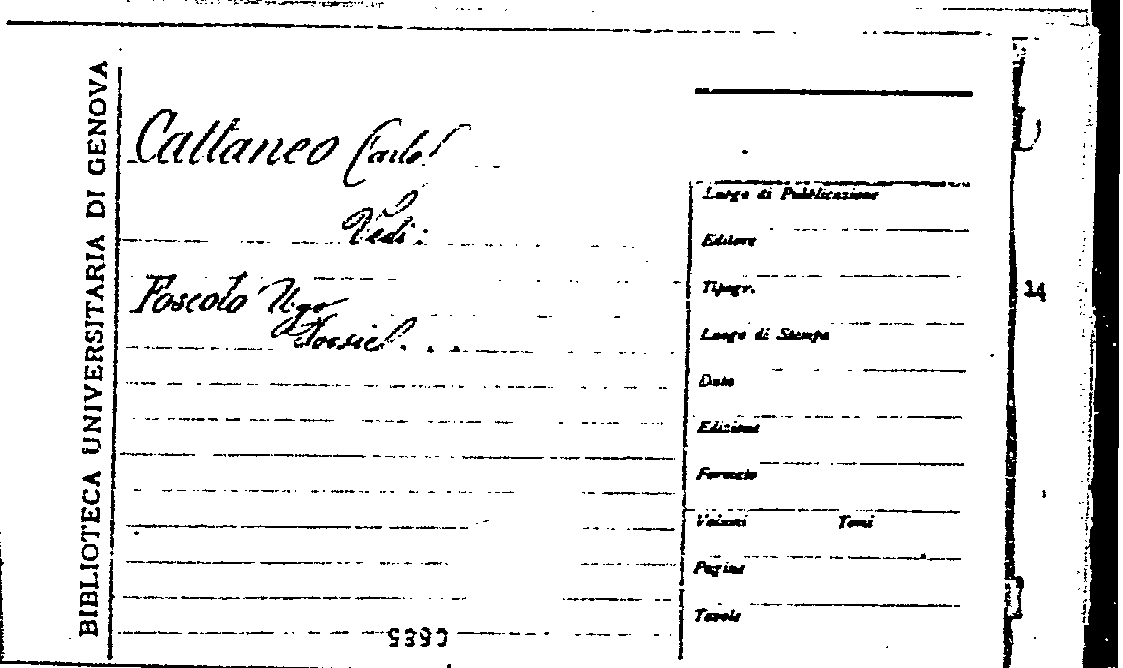 BIBLIOTECA UNIVERSITARIA DI GENOVA
Cattaneo Carlo
Vedi:
Foscolo Ugo
Poesie . . .
Luogo di Pubblicazione
Editore
Tipogr.
Luogo di Stampa
Data
Edizione
Formato
Volumi Tomi
Pagine
Tavole
14